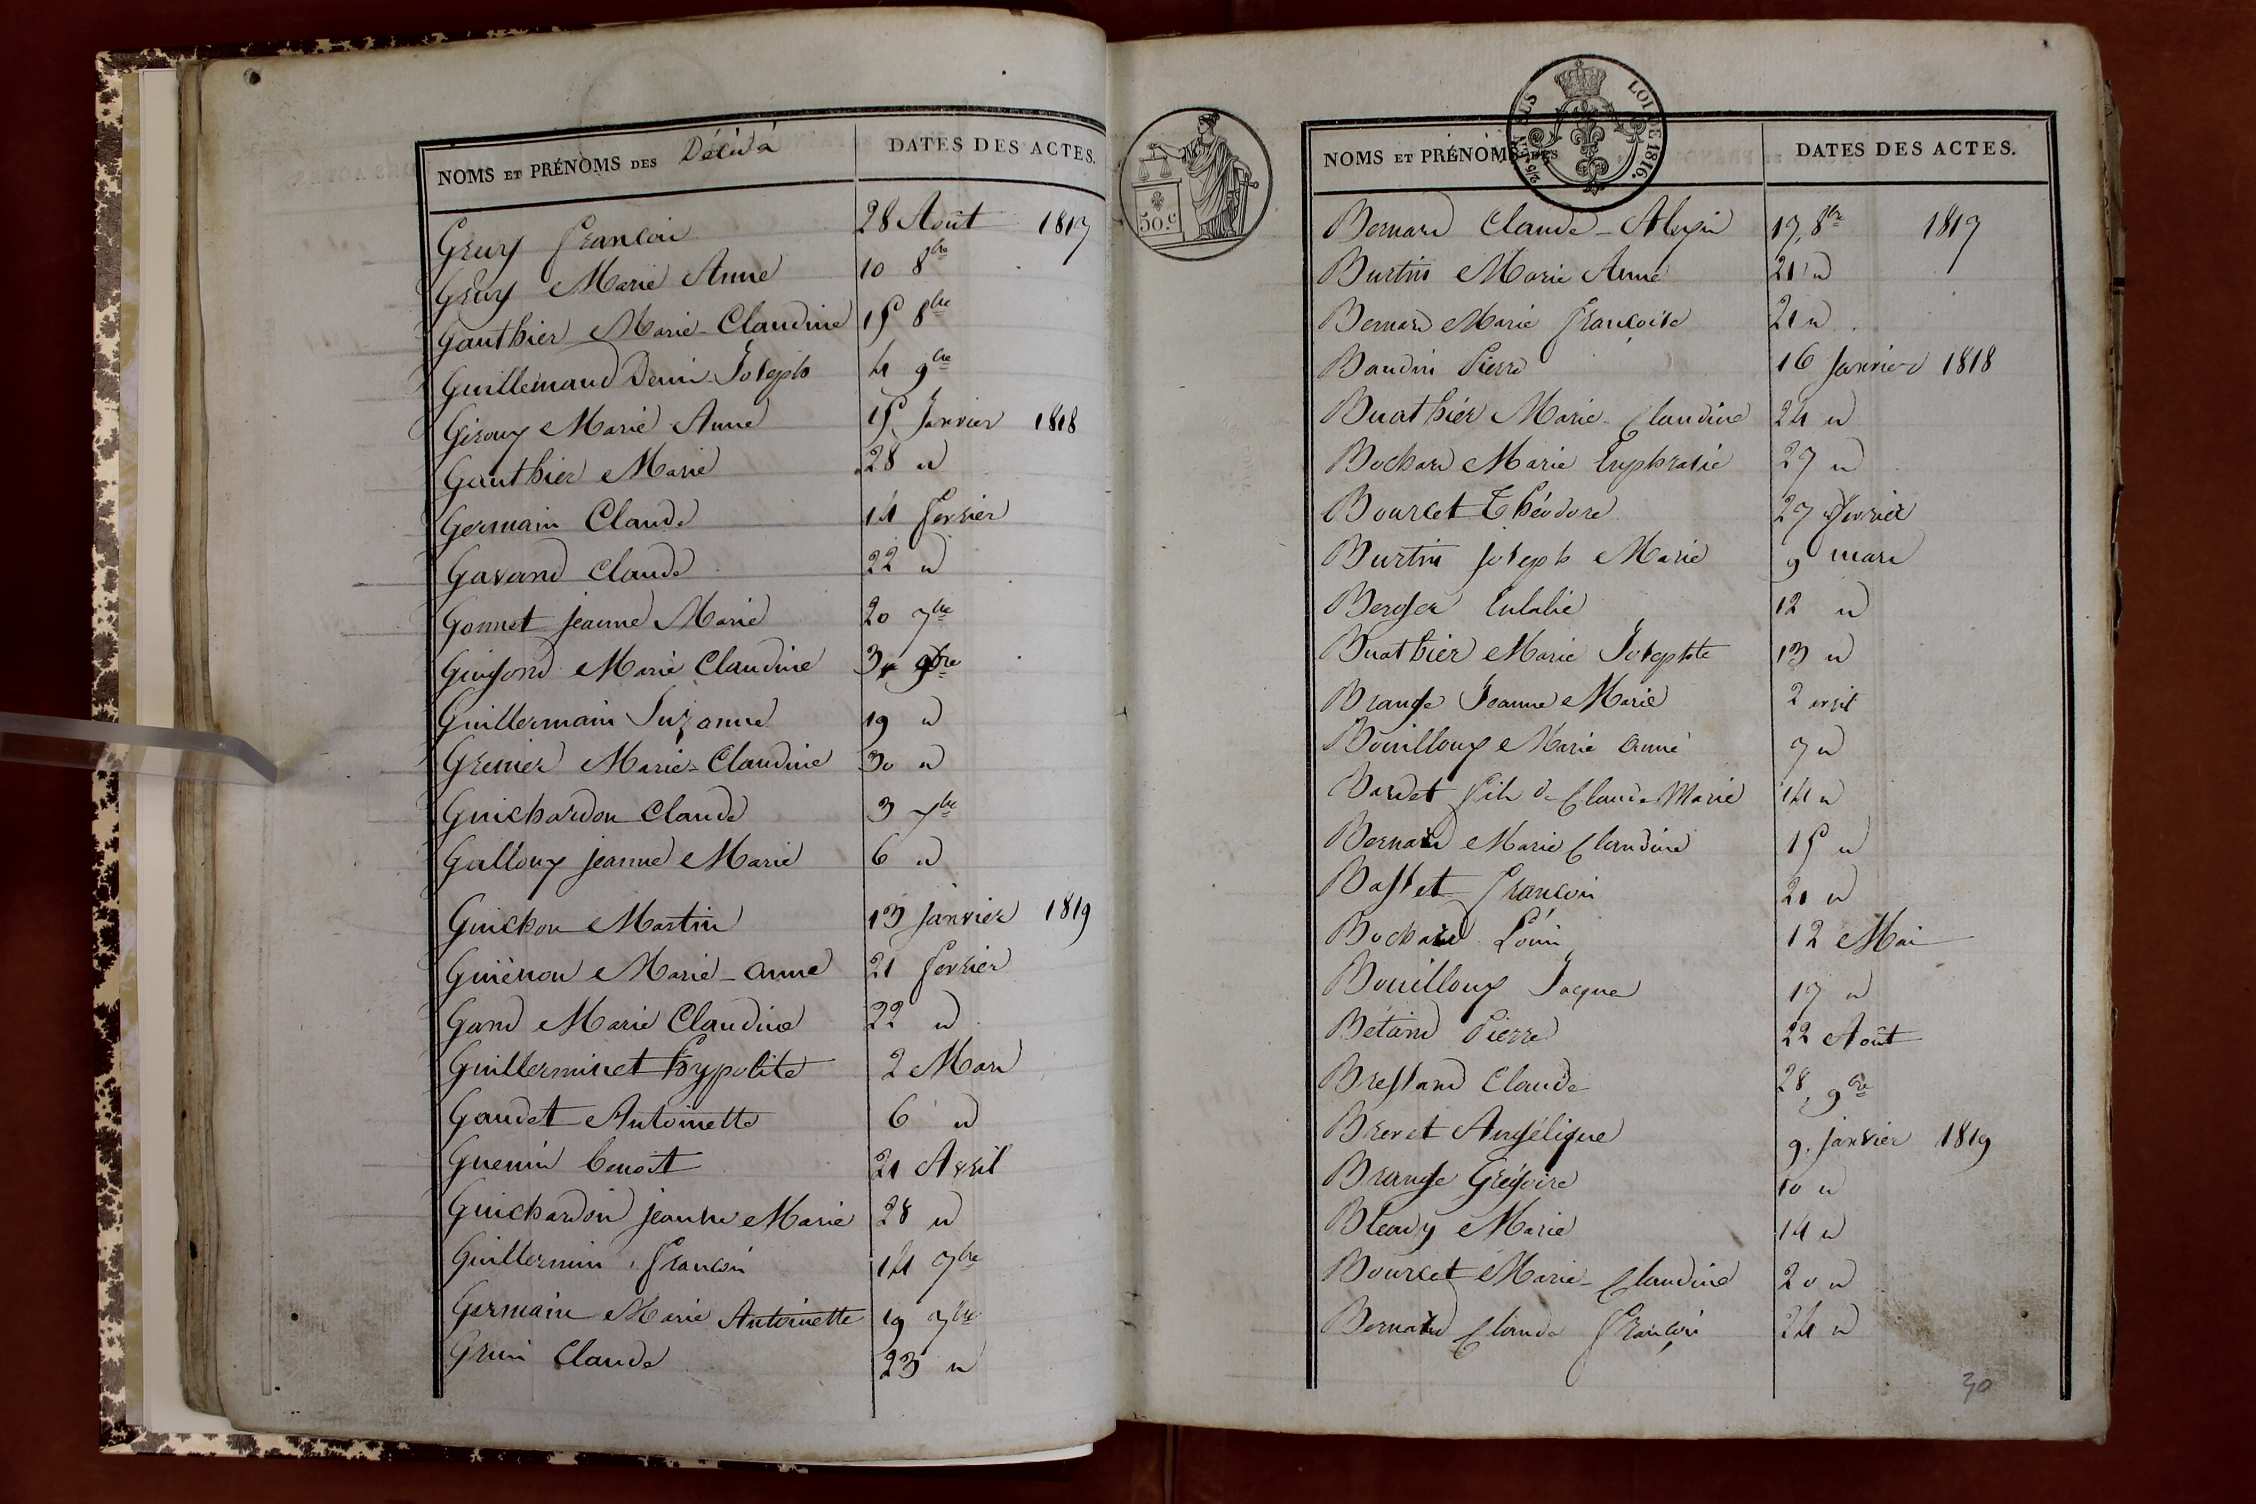 NOMS ET PRÉNOMS DES Décédés DATES DES ACTES.
Gruy François 28 Août 1817
Gruy Marie Anne 10 8bre
Gauthier Marie-Claudine 15 8bre
Guillemaud Denis Joseph 4 9bre
Giroux Marie Anne 15 Janvier 1818
Gauthier Marie 28 id
Germain Claude 14 fevrier
Gavand Claude 22 id
Gonnet jeanne Marie 20 7bre
Guigond Marie Claudine 9bre
Guillermain Suzanne 19 id
Grenier Marie-Claudine 30 id
Guichardon Claude 3 Xbre
Galloux jeanne Marie 6 id
Guichon Martin 13 janvier 1819
Guiènon Marie-anne 21 fevrier
Gand Marie Claudine 22 id
Guillerminet hypolite 2 Mars
Gaudet Antoinette 6 id
Guenin benoit 21 Avril
Guichardon jeanne Marie 28 id
Guillermin François 14 7bre
Germain Marie Antoinette 19 7bre
Grun Claude 23 id
50.C
LOI DE 1816.
NOMS ET PRÉNOMS DES DATES DES ACTES.
Bernard Claude-Alexis 17, 8bre 1817
Burtin Marie Anne 21 id
Bernard Marie Françoise 21 id
Baudin Pierre 16 Janvier 1818
Buathier Marie-Claudine 24 id
Bochard Marie Euphrasie 27 id
Bourcet Théodore 27 fevrier
Burtin joseph Marie 9 mars
Berger Eulalie 12 id
Buathier Marie Josephte 13 id
Brange Jeanne Marie 2 avril
Bouilloux Marie anne 7 id
Bardet fils de Claude Marie 14 id
Bernard Marie Claudine 15 id
Basset François 21 id
Bochard Louis 12 Mai
Bouilloux Jacques 17 id
Betand Pierre 22 Août
Bressand Claude 28, 9bre
Brevet Angélique 9. janvier 1819
Brange Grégoire 10 id
Marie 14 id
Bourcet Marie-Claudine 20 id
Bernard Claude François 24 id
30